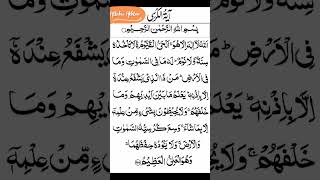 آيَةُ الْكُرْسِى
بِسْمِ اللهِ الرَّحْمٰنِ الرَّحِيْمِ
اَللهُ لَآ اِلٰهَ اِلَّا هُوَ اَلْحَىُّ الْقَيُّوْمُ لَا تَاْخُذُهٗ
سِنَةٌ وَّلَا نَوْمٌ لَهٗ مَا فِى السَّمٰوٰتِ وَمَا
فِى الْاَرْضِ مَنْ ذَا الَّذِىْ يَشْفَعُ عِنْدَهٗٓ
اِلَّا بِاِذْنِهٖ يَعْلَمُ مَا بَيْنَ اَيْدِيْهِمْ وَمَا
خَلْفَهُمْ وَلَا يُحِيْطُوْنَ بِشَىْءٍ مِّنْ عِلْمِهٖٓ
اِلَّا بِمَا شَآءَ وَسِعَ كُرْسِيُّهُ السَّمٰوٰتِ
وَالْاَرْضَ وَلَا يَئُوْدُهٗ حِفْظُهُمَا
وَهُوَ الْعَلِىُّ الْعَظِيْمُ